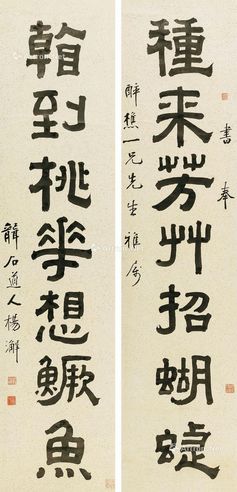 種来芳艸招蝴蜨
書奉
醉樵一兄先生雅属
翰到桃華想鱖魚
龍石道人楊澥